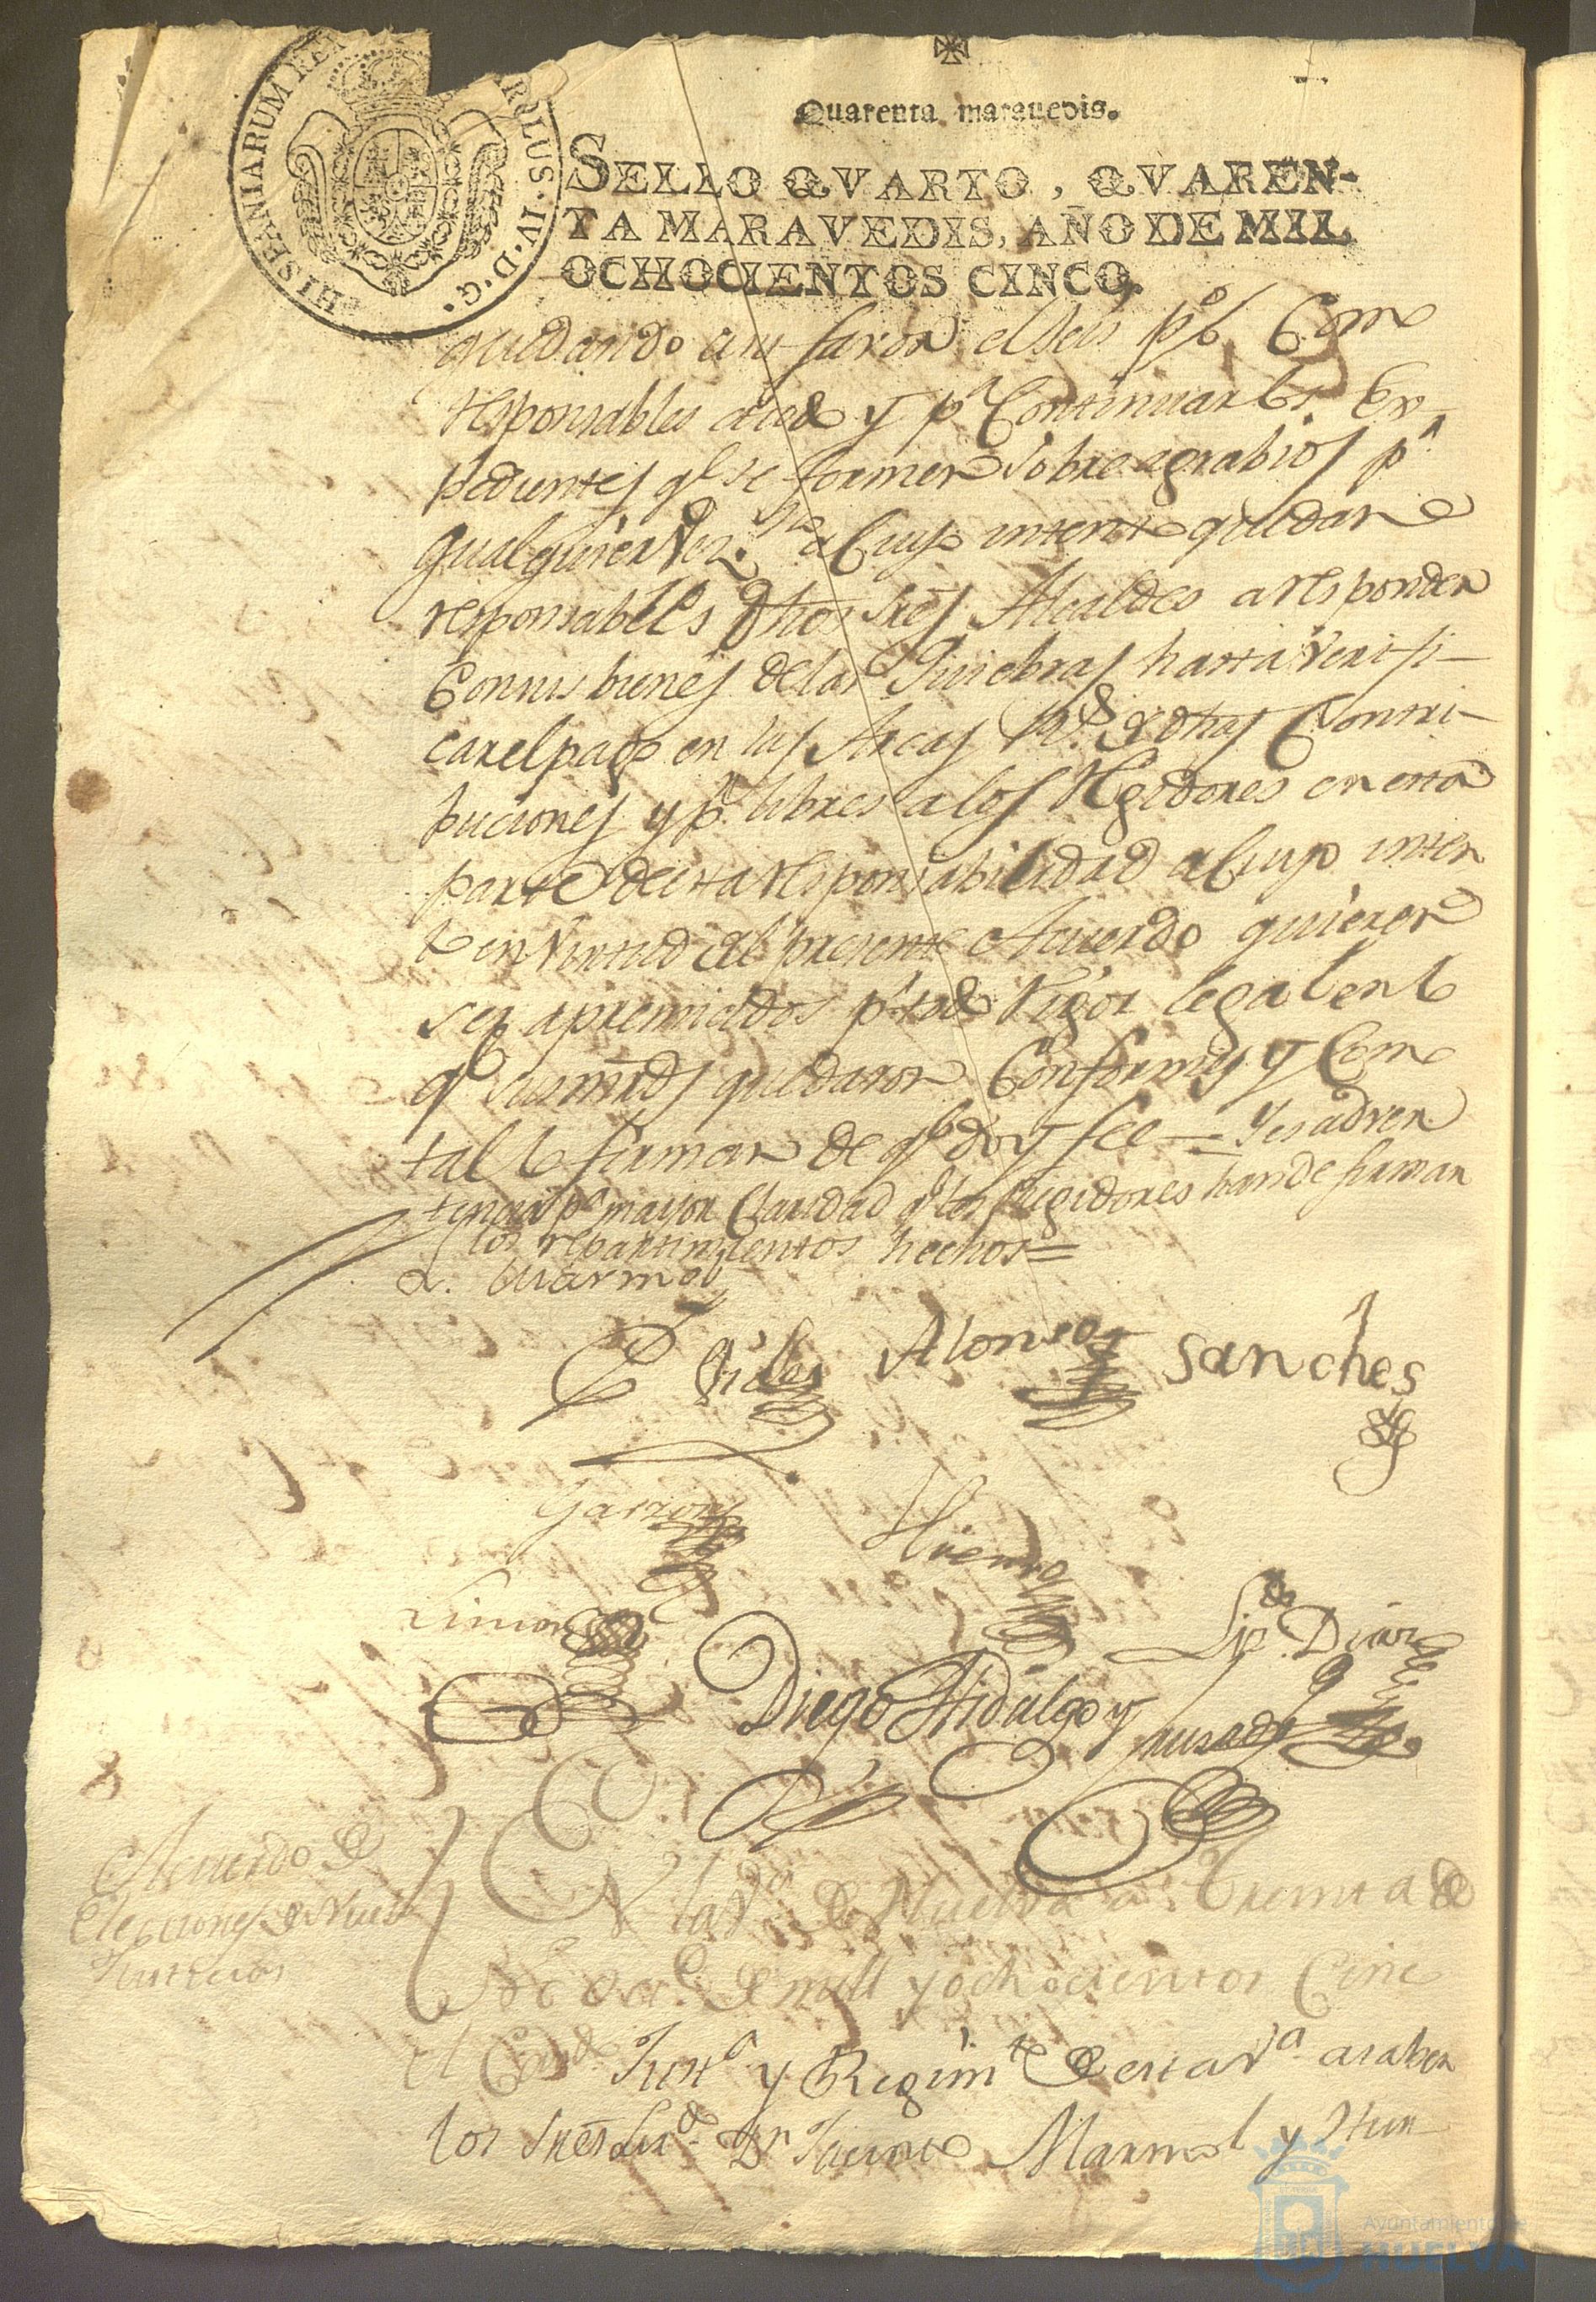 HISPANIARUM REX CAROLUS·IV·D·G·
Quarenta maravedis.
SELLO QVARTO, QVAREN-
TA MARAVEDIS, AÑO DE MIL
OCHOCIENTOS CINCO.
quedando a su favor el seis p% Como
responsables a todo y pa Continuar los Ex-
pedientes qe se formen sobre agrabios pa
qualquier Vezno a Cuyo intento quedan
responsables dhos Sres Alcaldes a responder
Con sus bienes de las quiebras hasta verifi-
car el pago en las Arcas Rs de dhas Contri-
buciones y pr libres a los Regidores en esta
parte de esta responsabilidad a Cuyo inten
to en Virtud del presente Acuerdo quieren
ser apremiados pr todo Rigor legal en lo
qe sus mrds quedaron Conformes y Como
tal lo firman de qe doy fee = Y es adver
tencia pa mayor Claridad qe los Regidores han de firmar
los repartimientos hechos =
L. Marmol
Giles Alonso Sanches
Garzon
Limon
Lizdo Diaz
Diego Hidalgo y
Acuerdo de
Elecciones de Nuebas
Justicias
En la Va de Huelva a Treinta de
de mill y ochocientos Cinco
el Justa y Regimto de esta Va a saber
los Sres Lizdo Dn Jacinto Marmol y Hur-
Ayuntamiento de
HUELVA